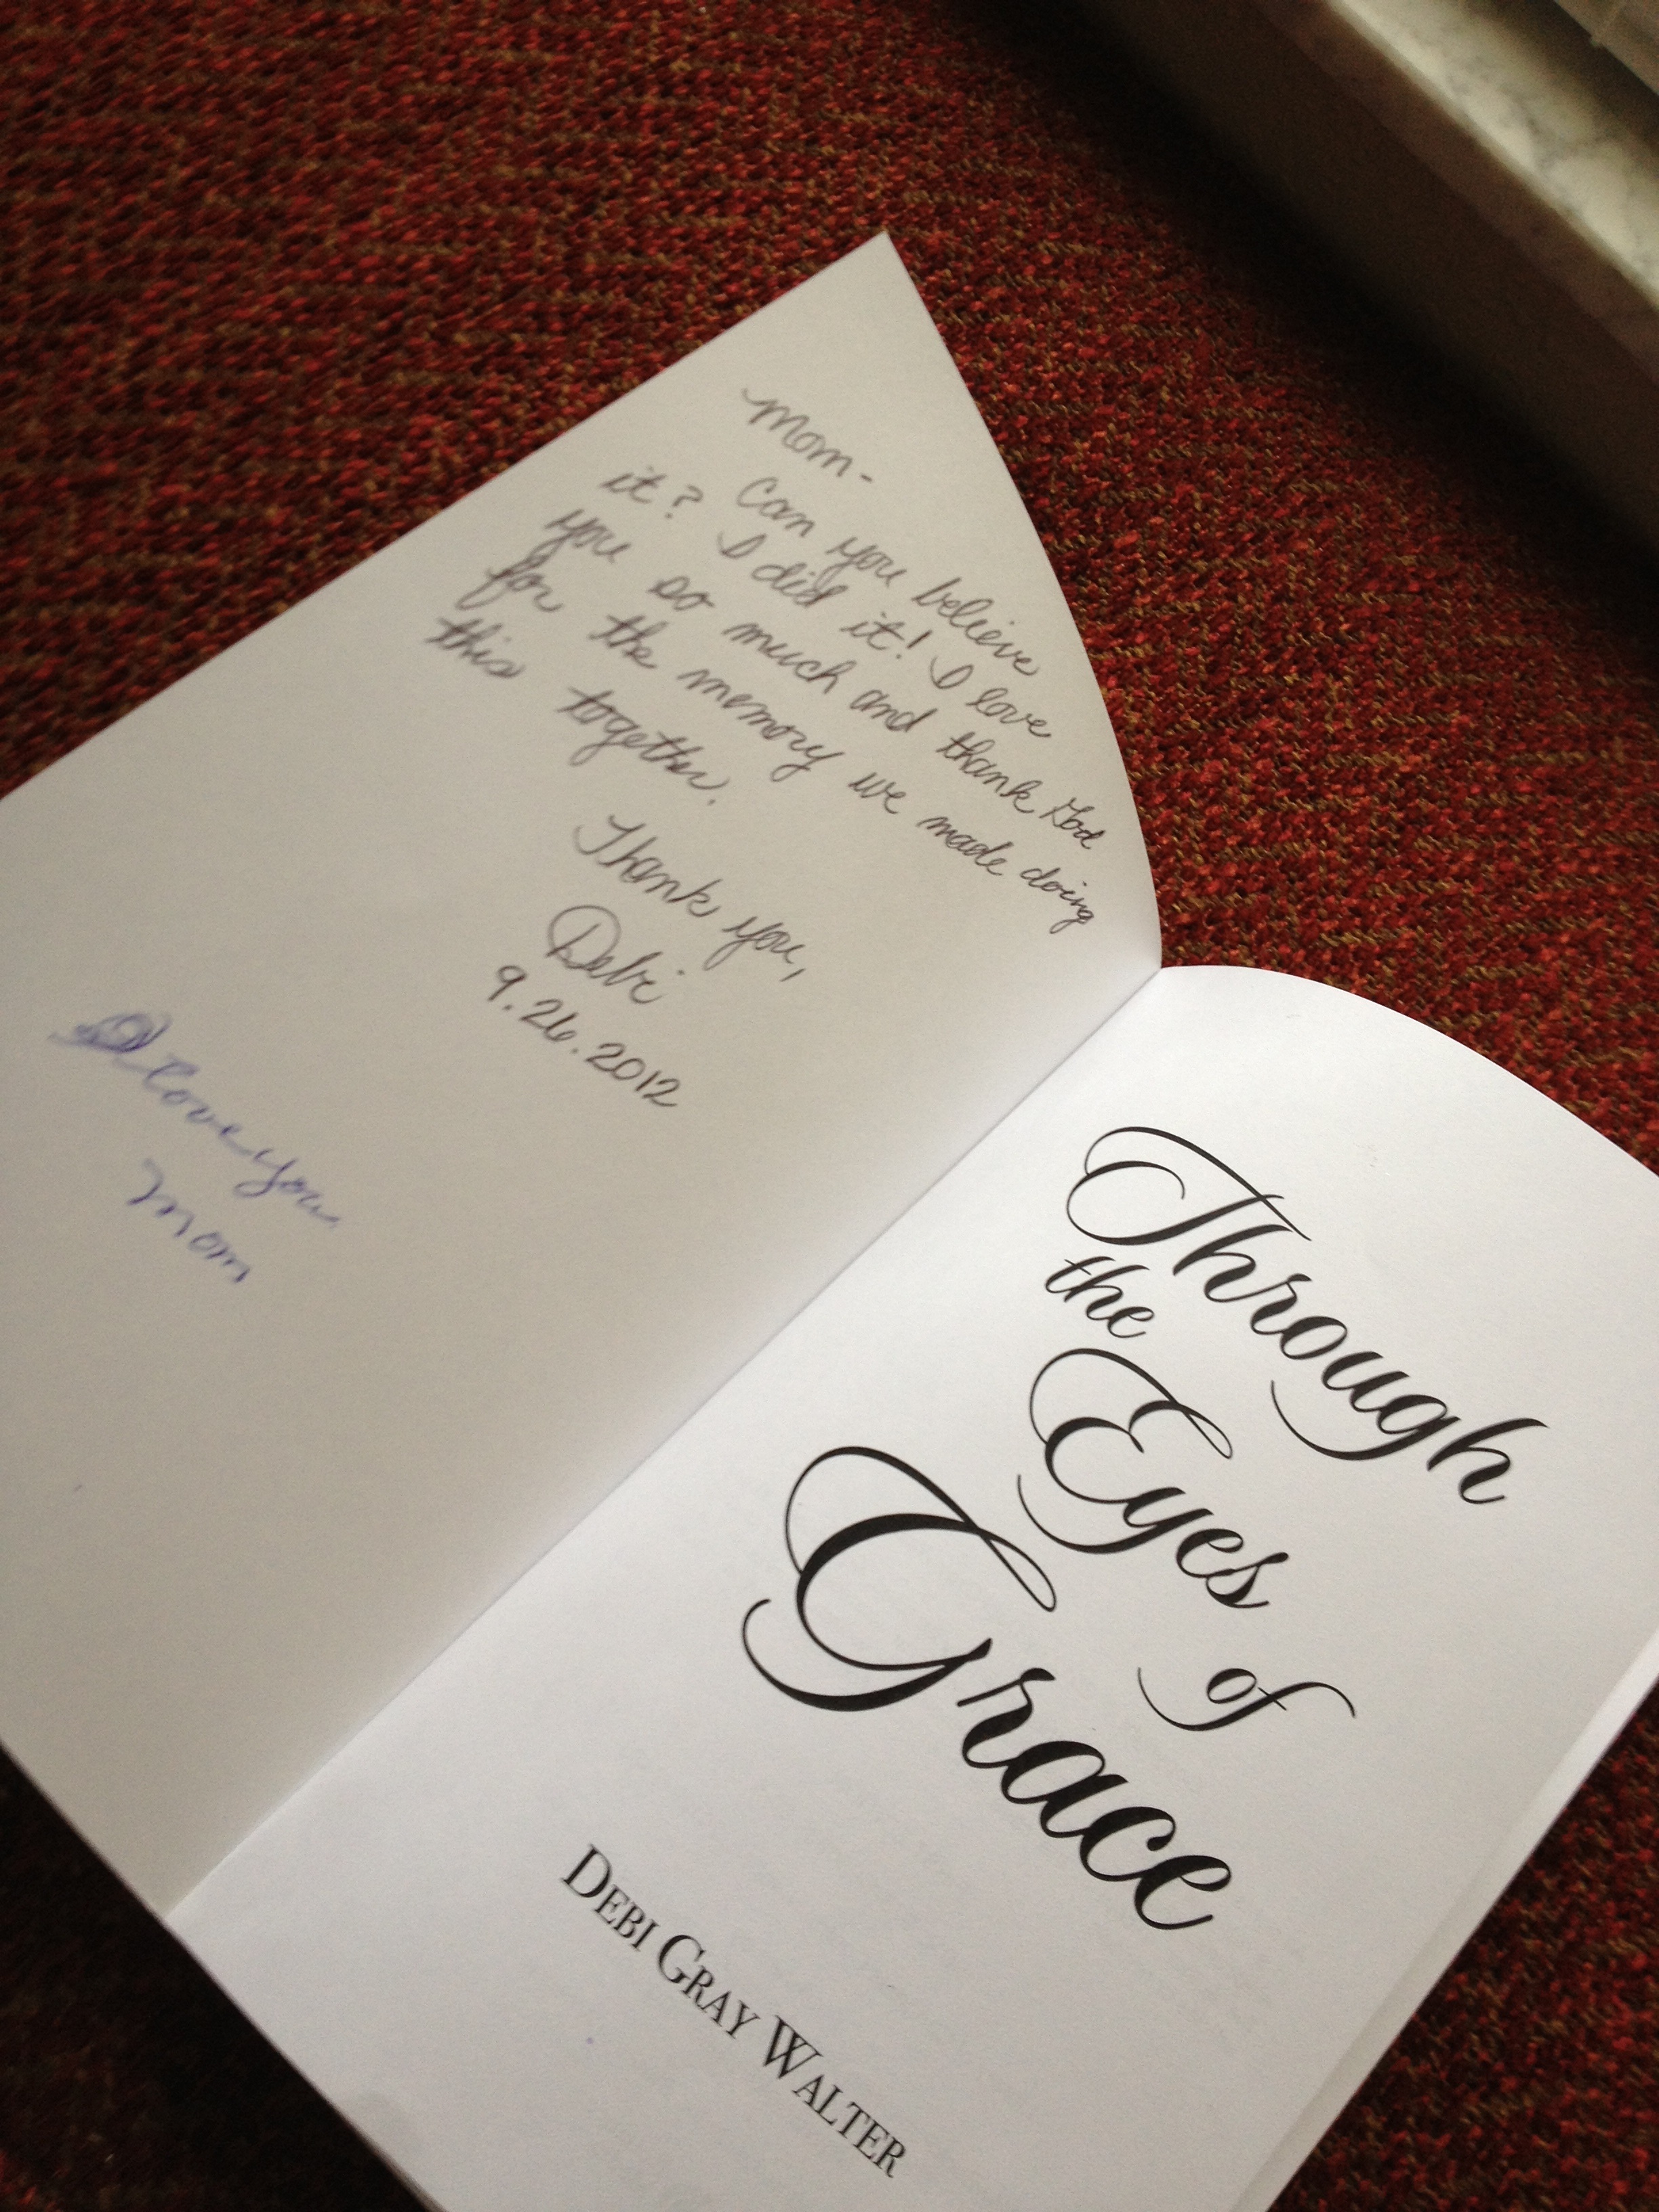 Mom-
Can you believe
it? I did it! I love
you so much and thank God
for the memory we made doing
this together.
Thank you,
Debi
9.26.2012
I love you
Mom
Through
the
Eyes
of
Grace
DEBI GRAY WALTER